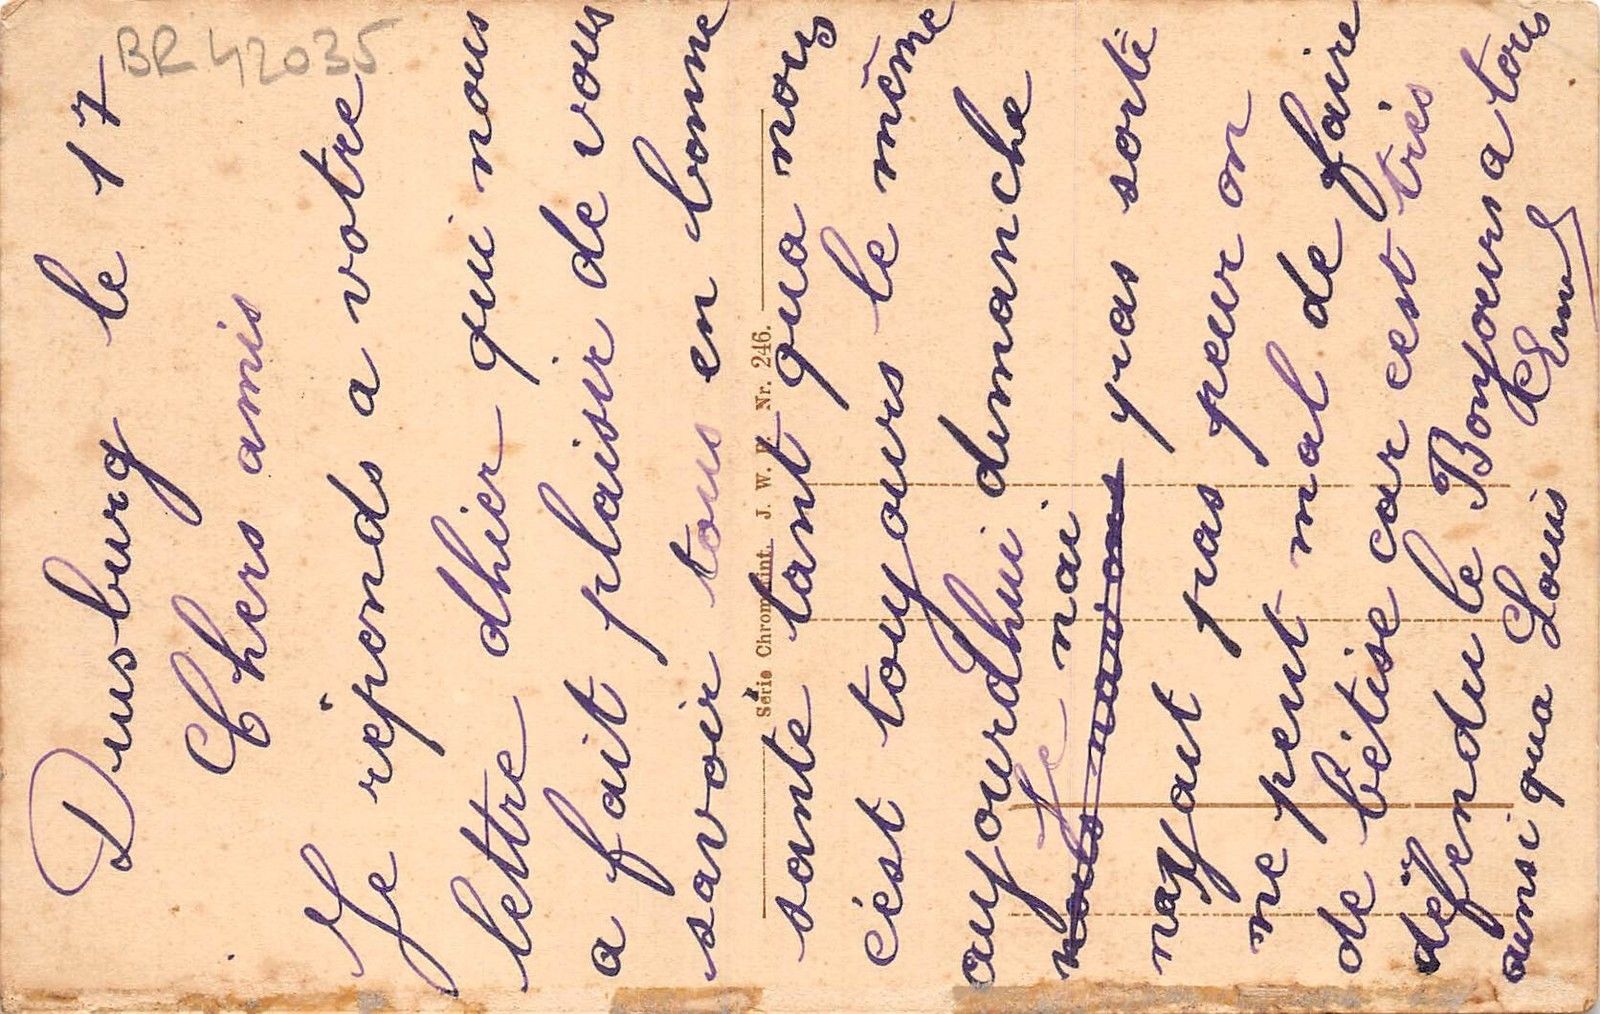 BR 42035
Duisburg le 17
Chers amis
Je réponds a votre
lettre dhier qui nous
a fait plaisir de vous
savoir tous en bonne
santé tant qua nous
c'est toujours le même
aujourdhui dimanche
Je nai
nous navons pas sorté
nayant pas peur on
ne peut mal de faire
de bêtise car cest très
défendu le Bonjours a tous
ainsi qua Louis
Série Chrom J. W. Nr. 246.